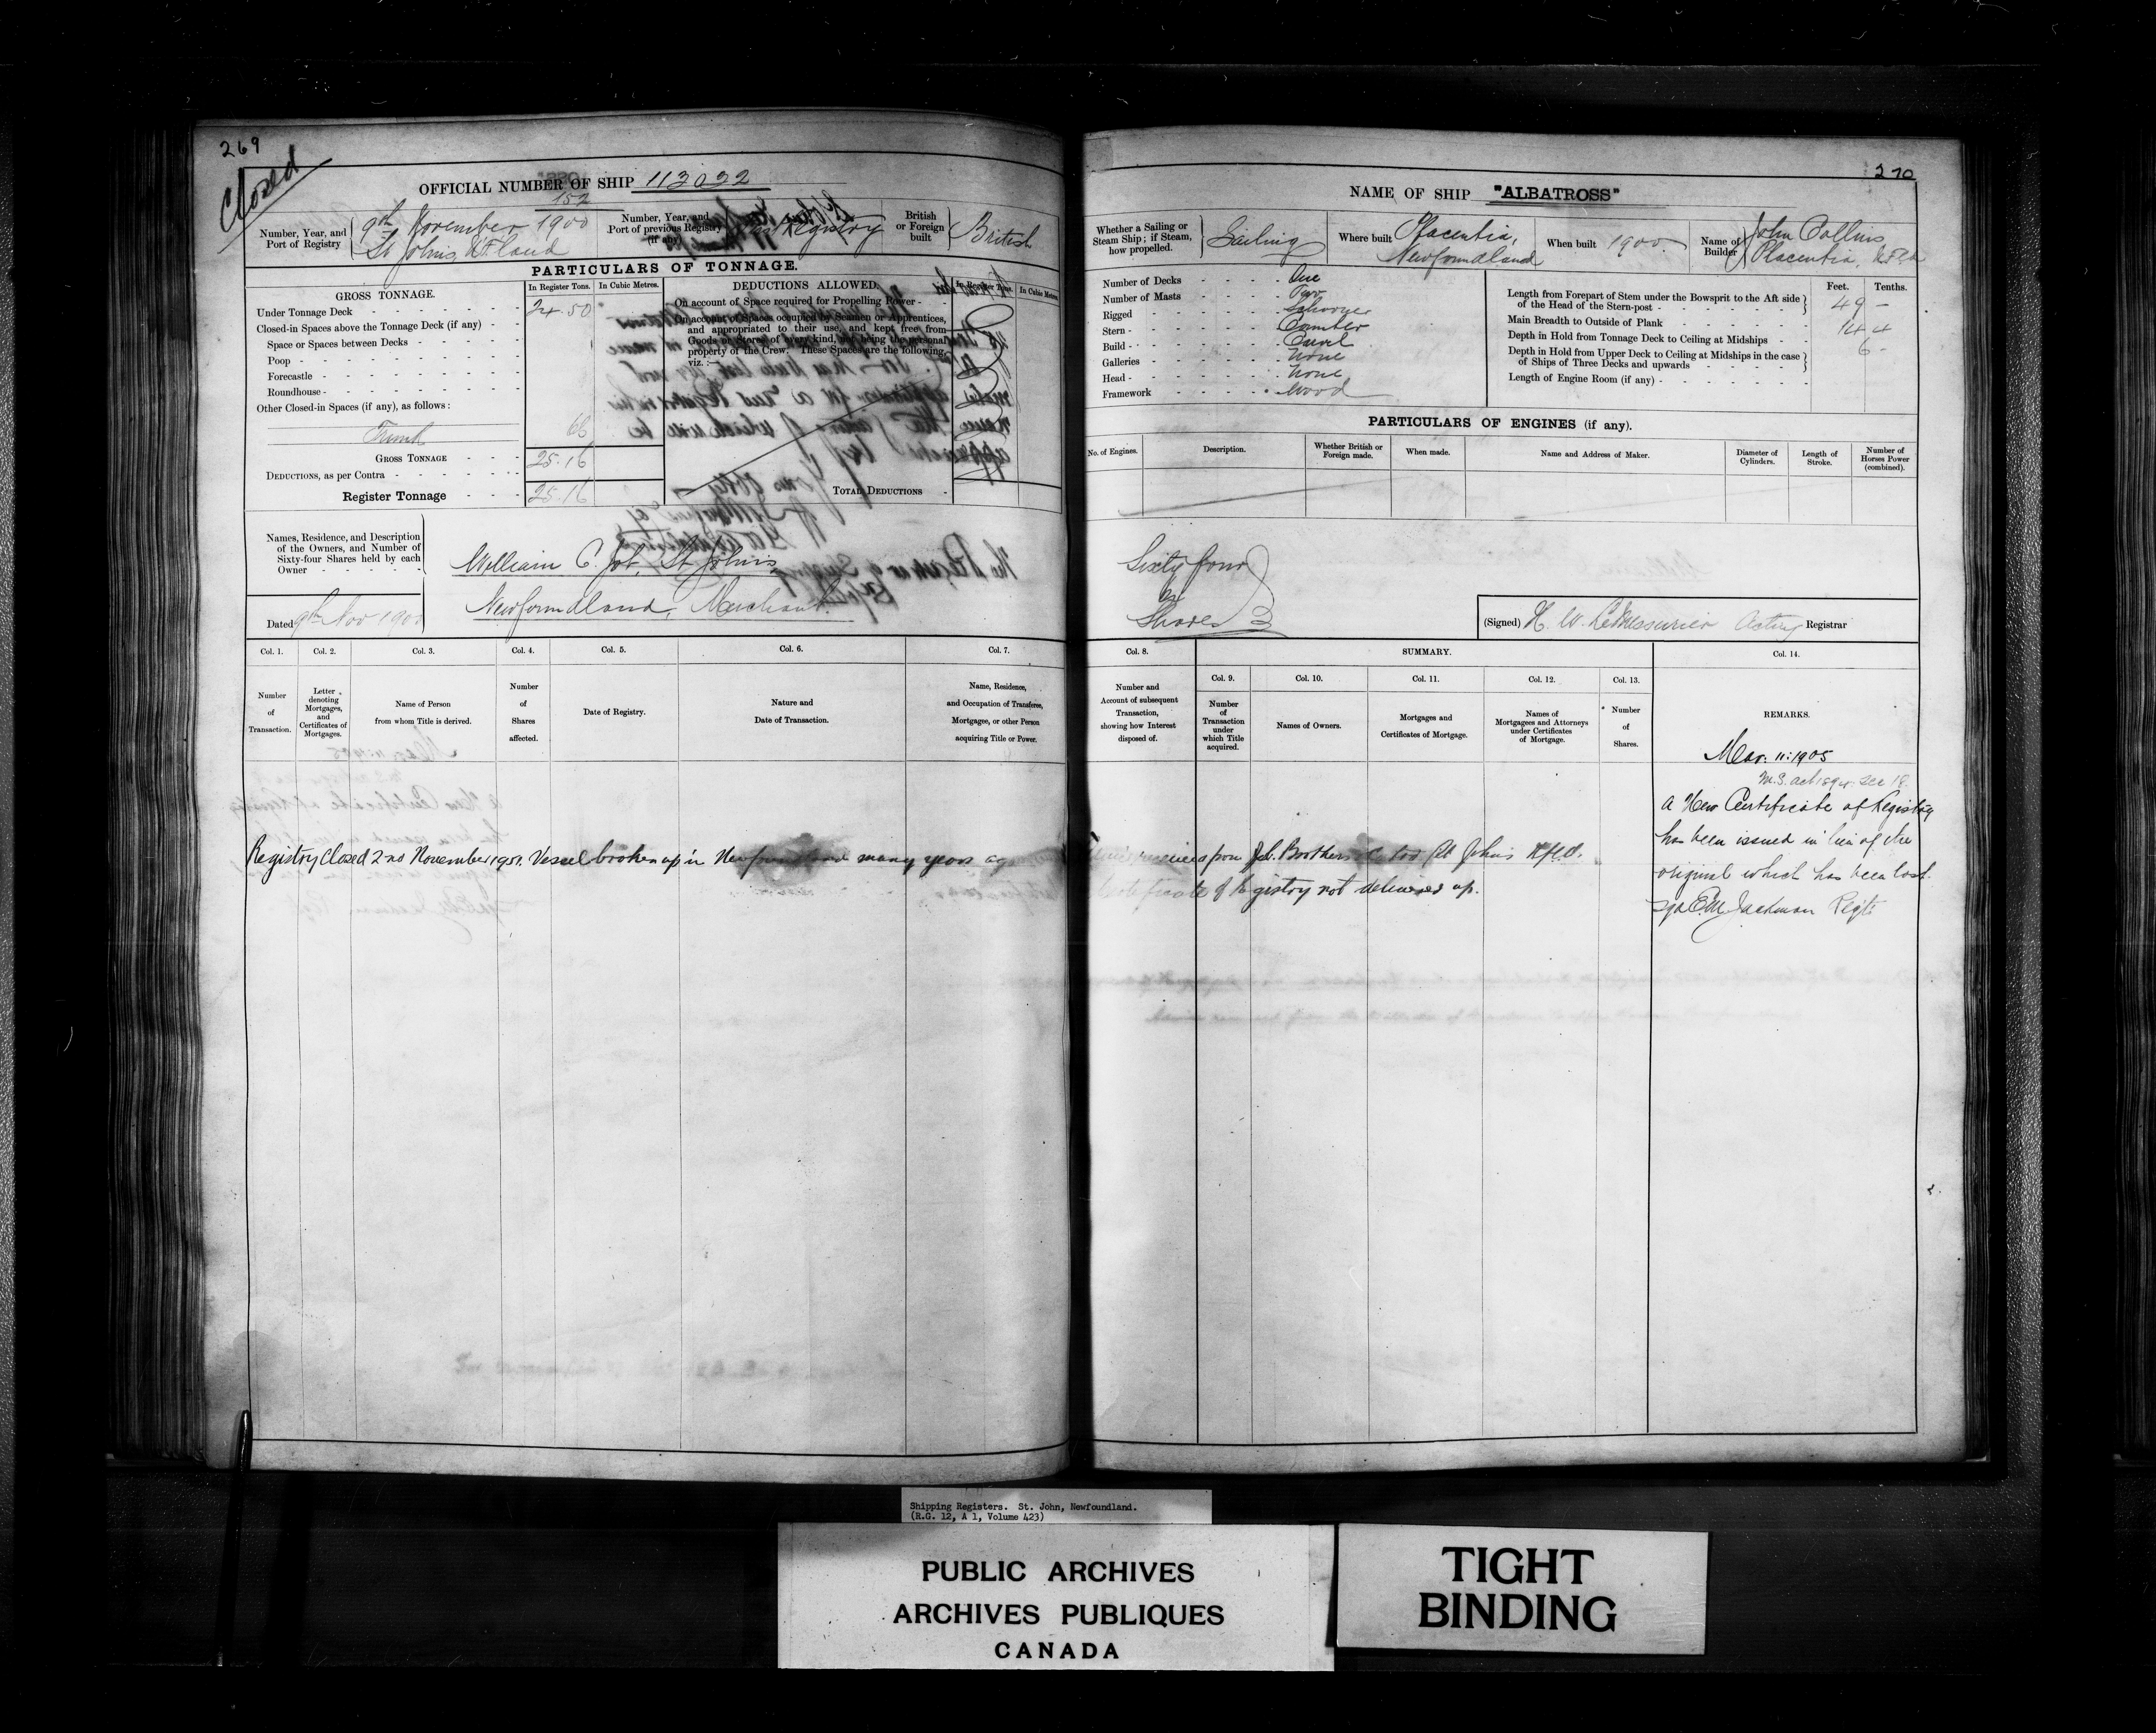 269
Closed
OFFICIAL NUMBER OF SHIP 113022
152
Number, Year, and Port of Registry
9th November 1900
St Johns Nfland
Number, Year, and Port of previous Registry (if any)
1st Registry
British or Foreign built
British
PARTICULARS OF TONNAGE.
GROSS TONNAGE.
In Register Tons.
In Cubic Metres.
Under Tonnage Deck 24.50
Closed-in Spaces above the Tonnage Deck (if any)
Space or Spaces between Decks
Poop
Forecastle
Roundhouse
Other Closed-in Spaces (if any), as follows:
Trunk 66
GROSS TONNAGE 25.16
DEDUCTIONS, as per Contra
Register Tonnage 25.16
DEDUCTIONS ALLOWED.
In Register Tons.
In Cubic Metres.
On account of Space required for Propelling Power
On account of Spaces occupied by Seamen or Apprentices,
and appropriated to their use, and kept free from
Goods or Stores of every kind, not being the personal
property of the Crew. These Spaces are the following,
viz.:—
TOTAL DEDUCTIONS
Names, Residence, and Description
of the Owners, and Number of
Sixty-four Shares held by each
Owner
William C. Job, St Johns,
Newfoundland, Merchant.
Dated 9th Nov 1900
Col. 1.
Number of Transaction.
Col. 2.
Letter denoting Mortgages, and Certificates of Mortgages.
Col. 3.
Name of Person from whom Title is derived.
Col. 4.
Number of Shares affected.
Col. 5.
Date of Registry.
Col. 6.
Nature and Date of Transaction.
Col. 7.
Name, Residence, and Occupation of Transferee, Mortgagee, or other Person acquiring Title or Power.
Registry Closed 2nd November 1951. Vessel broken up in Newfoundland many years ago
270
NAME OF SHIP "ALBATROSS"
Whether a Sailing or Steam Ship; if Steam, how propelled.
Sailing
Where built
Placentia,
Newfoundland
When built 1900
Name of Builder
John Collins
Placentia, Nfld
Number of Decks One
Number of Masts Two
Rigged Schooner
Stern Counter
Build Carvel
Galleries None
Head None
Framework Wood
Feet. Tenths.
Length from Forepart of Stem under the Bowsprit to the Aft side
of the Head of the Stern-post 49 -
Main Breadth to Outside of Plank 14 4
Depth in Hold from Tonnage Deck to Ceiling at Midships 6 -
Depth in Hold from Upper Deck to Ceiling at Midships in the case
of Ships of Three Decks and upwards
Length of Engine Room (if any)
PARTICULARS OF ENGINES (if any).
No. of Engines.
Description.
Whether British or Foreign made.
When made.
Name and Address of Maker.
Diameter of Cylinders.
Length of Stroke.
Number of Horses Power (combined).
Sixty four
Shares
(Signed) H. W. LeMessurier Acting Registrar
Col. 8.
Number and Account of subsequent Transaction, showing how Interest disposed of.
SUMMARY.
Col. 9.
Number of Transaction under which Title acquired.
Col. 10.
Names of Owners.
Col. 11.
Mortgages and Certificates of Mortgage.
Col. 12.
Names of Mortgagees and Attorneys under Certificates of Mortgage.
Col. 13.
Number of Shares.
Col. 14.
REMARKS.
Mar: 11: 1905
M.S. act 1894 Sec 18
A New Certificate of Registry
has been issued in lieu of the
original which has been lost.
sgd E.M. Jackman Regtr
received from Job Brothers & Co Ltd St John's Nfld.
Certificate of Registry not delivered up.
Shipping Registers. St. John, Newfoundland.
(R.G. 12, A 1, Volume 423)
PUBLIC ARCHIVES
ARCHIVES PUBLIQUES
CANADA
TIGHT
BINDING